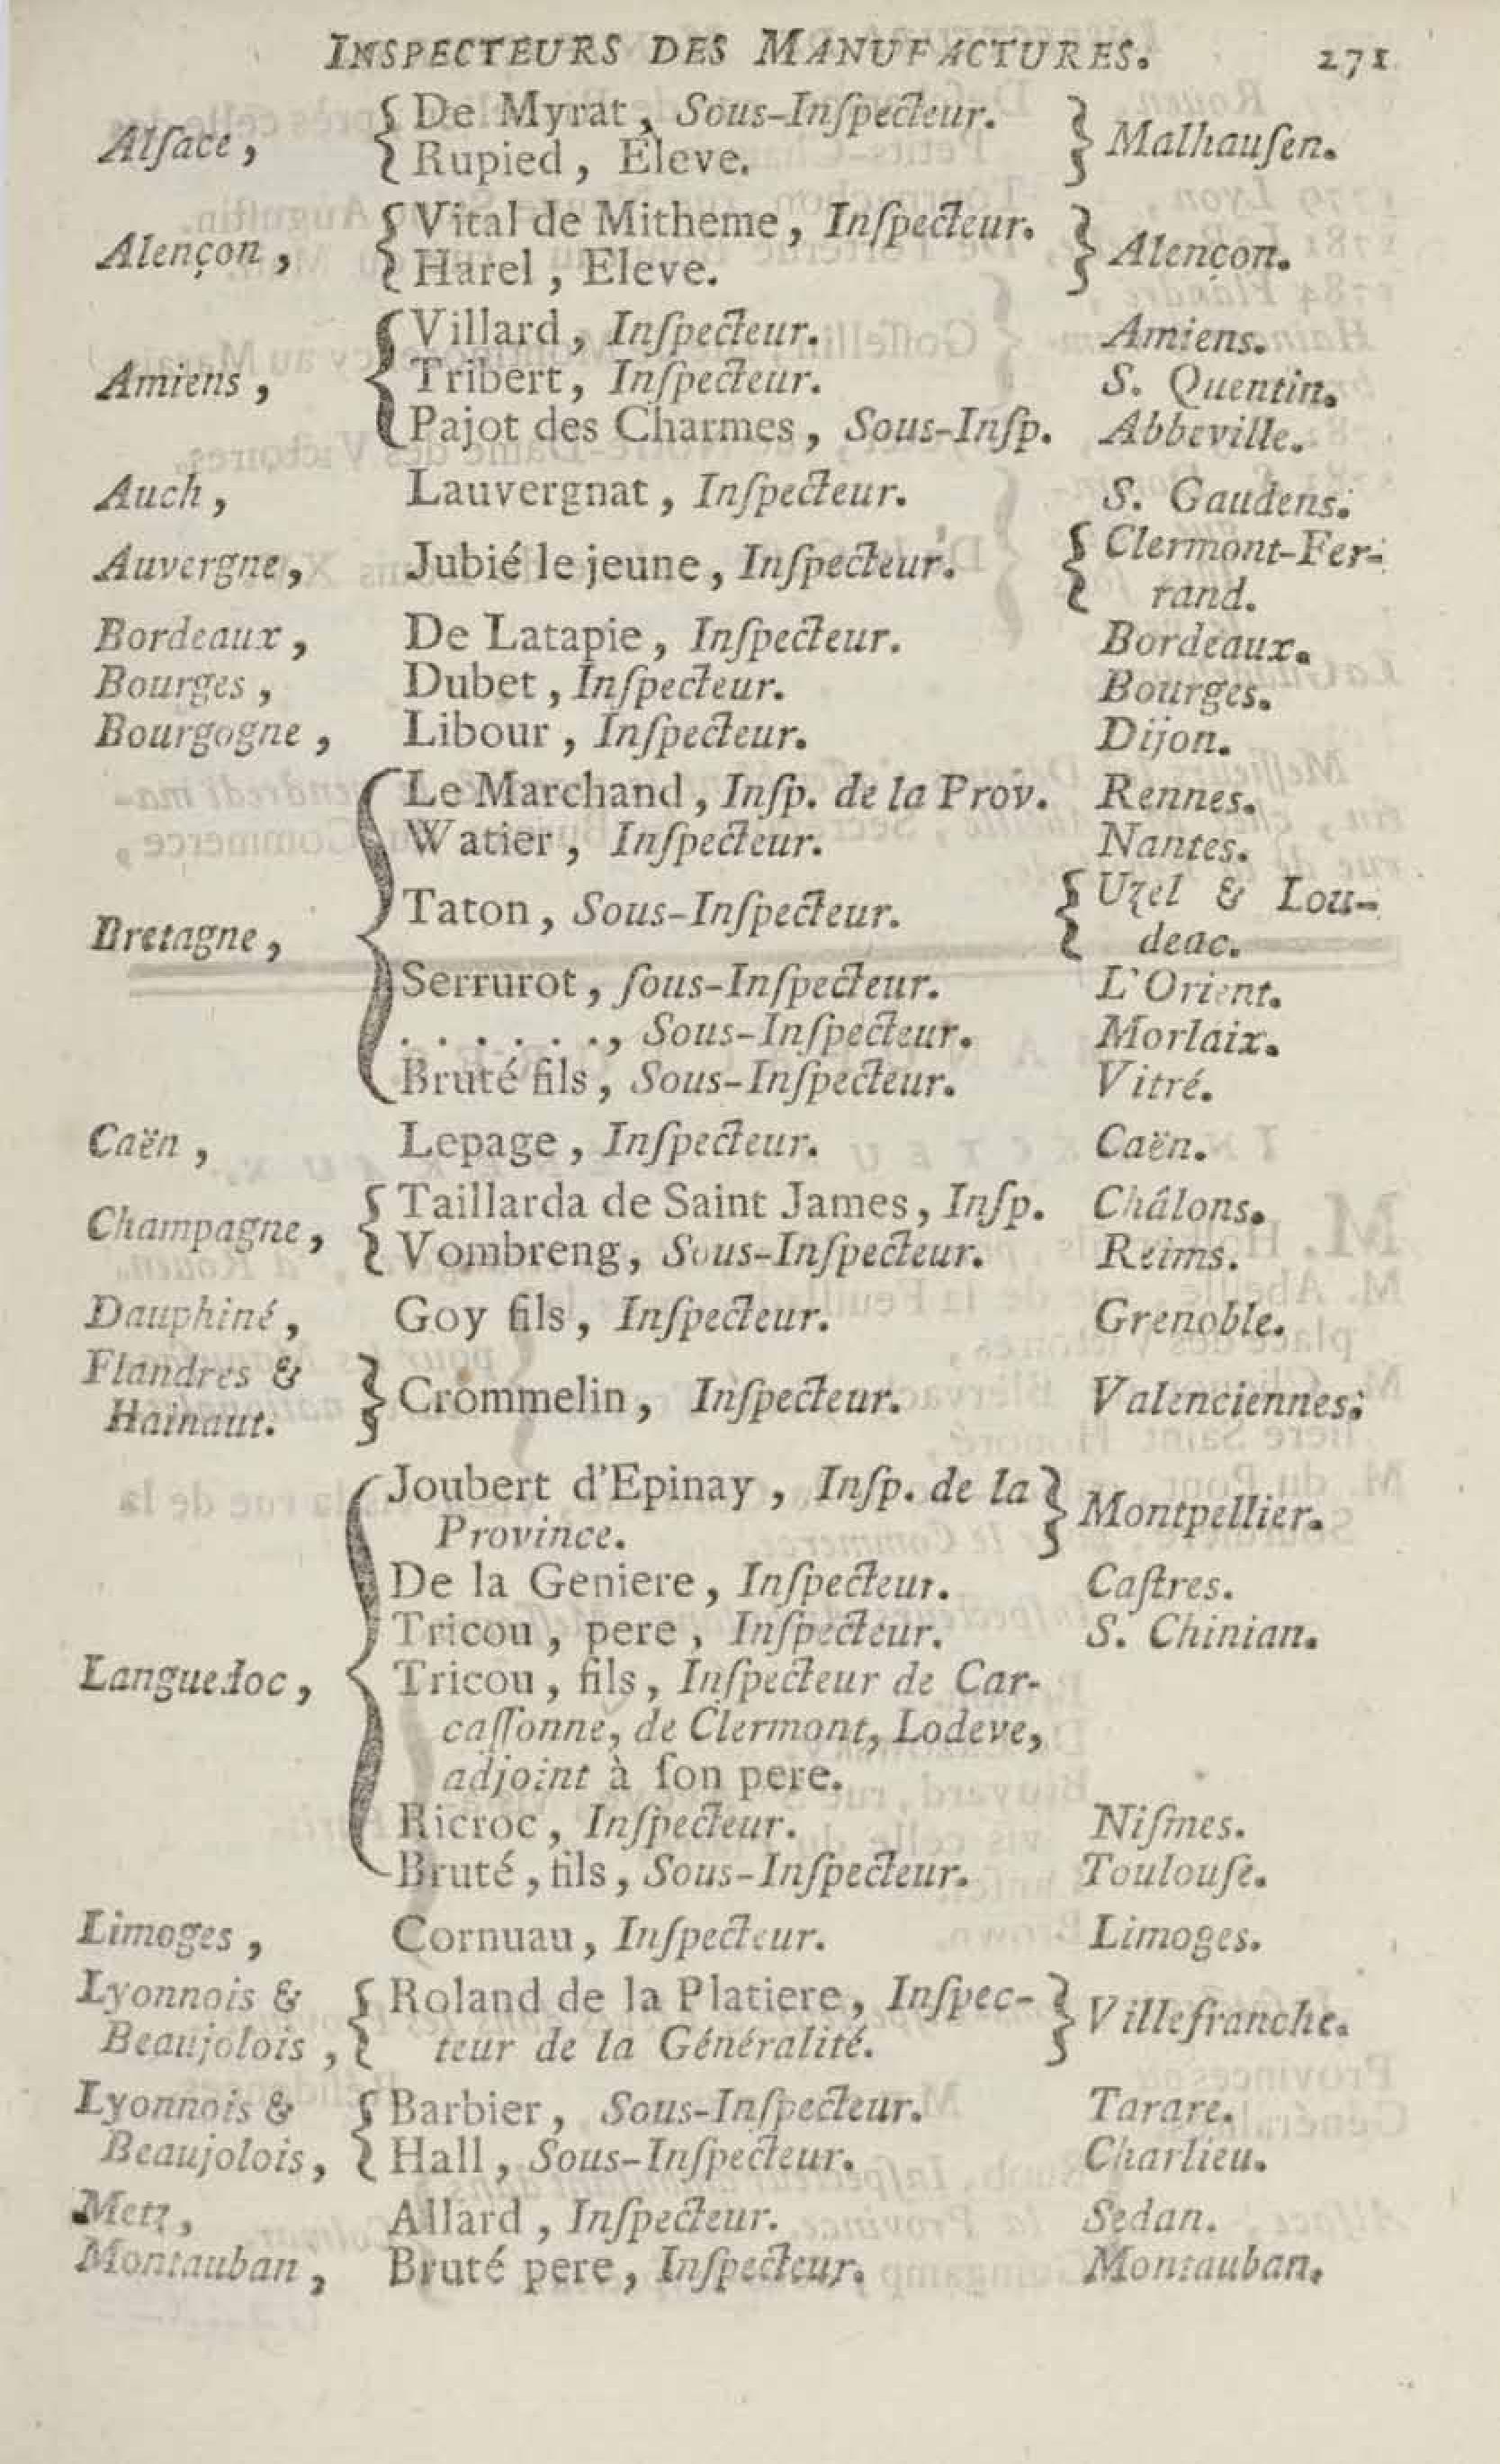 INSPECTEURS DES MANUFACTURES. 271
Alſace, { De Myrat, Sous-Inſpecteur. } Malhauſen.
{ Rupied, Eleve.
Alençon, { Vital de Mitheme, Inſpecteur. } Alençon.
{ Harel, Eleve.
Villard, Inſpecteur. Amiens.
Amiens, { Tribert, Inſpecteur. S. Quentin.
Pajot des Charmes, Sous-Inſp. Abbeville.
Auch, Lauvergnat, Inſpecteur. S. Gaudens.
Auvergne, Jubié le jeune, Inſpecteur. { Clermont-Fer-
rand.
Bordeaux, De Latapie, Inſpecteur. Bordeaux.
Bourges, Dubet, Inſpecteur. Bourges.
Bourgogne, Libour, Inſpecteur. Dijon.
Le Marchand, Inſp. de la Prov. Rennes.
Watier, Inſpecteur. Nantes.
Taton, Sous-Inſpecteur. { Uzel & Lou-
deac.
Bretagne, {
Serrurot, ſous-Inſpecteur. L'Orient.
. . . . . ., Sous-Inſpecteur. Morlaix.
Bruté fils, Sous-Inſpecteur. Vitré.
Caën, Lepage, Inſpecteur. Caën.
Champagne, { Taillarda de Saint James, Inſp. Châlons.
{ Vombreng, Sous-Inſpecteur. Reims.
Dauphiné, Goy fils, Inſpecteur. Grenoble.
Flandres &
Hainaut. } Crommelin, Inſpecteur. Valenciennes.
Joubert d'Epinay, Inſp. de la } Montpellier.
Province.
De la Geniere, Inſpecteur. Caſtres.
Tricou, pere, Inſpecteur. S. Chinian.
Languedoc, { Tricou, fils, Inſpecteur de Car-
caſſonne, de Clermont, Lodeve,
adjoint à ſon pere.
Ricroc, Inſpecteur. Niſmes.
Bruté, fils, Sous-Inſpecteur. Toulouſe.
Limoges, Cornuau, Inſpecteur. Limoges.
Lyonnois & { Roland de la Platiere, Inſpec- } Villefranche.
Beaujolois, { teur de la Généralité.
Lyonnois & { Barbier, Sous-Inſpecteur. Tarare.
Beaujolois, { Hall, Sous-Inſpecteur. Charlieu.
Metz, Allard, Inſpecteur. Sedan.
Montauban, Bruté pere, Inſpecteur. Montauban.